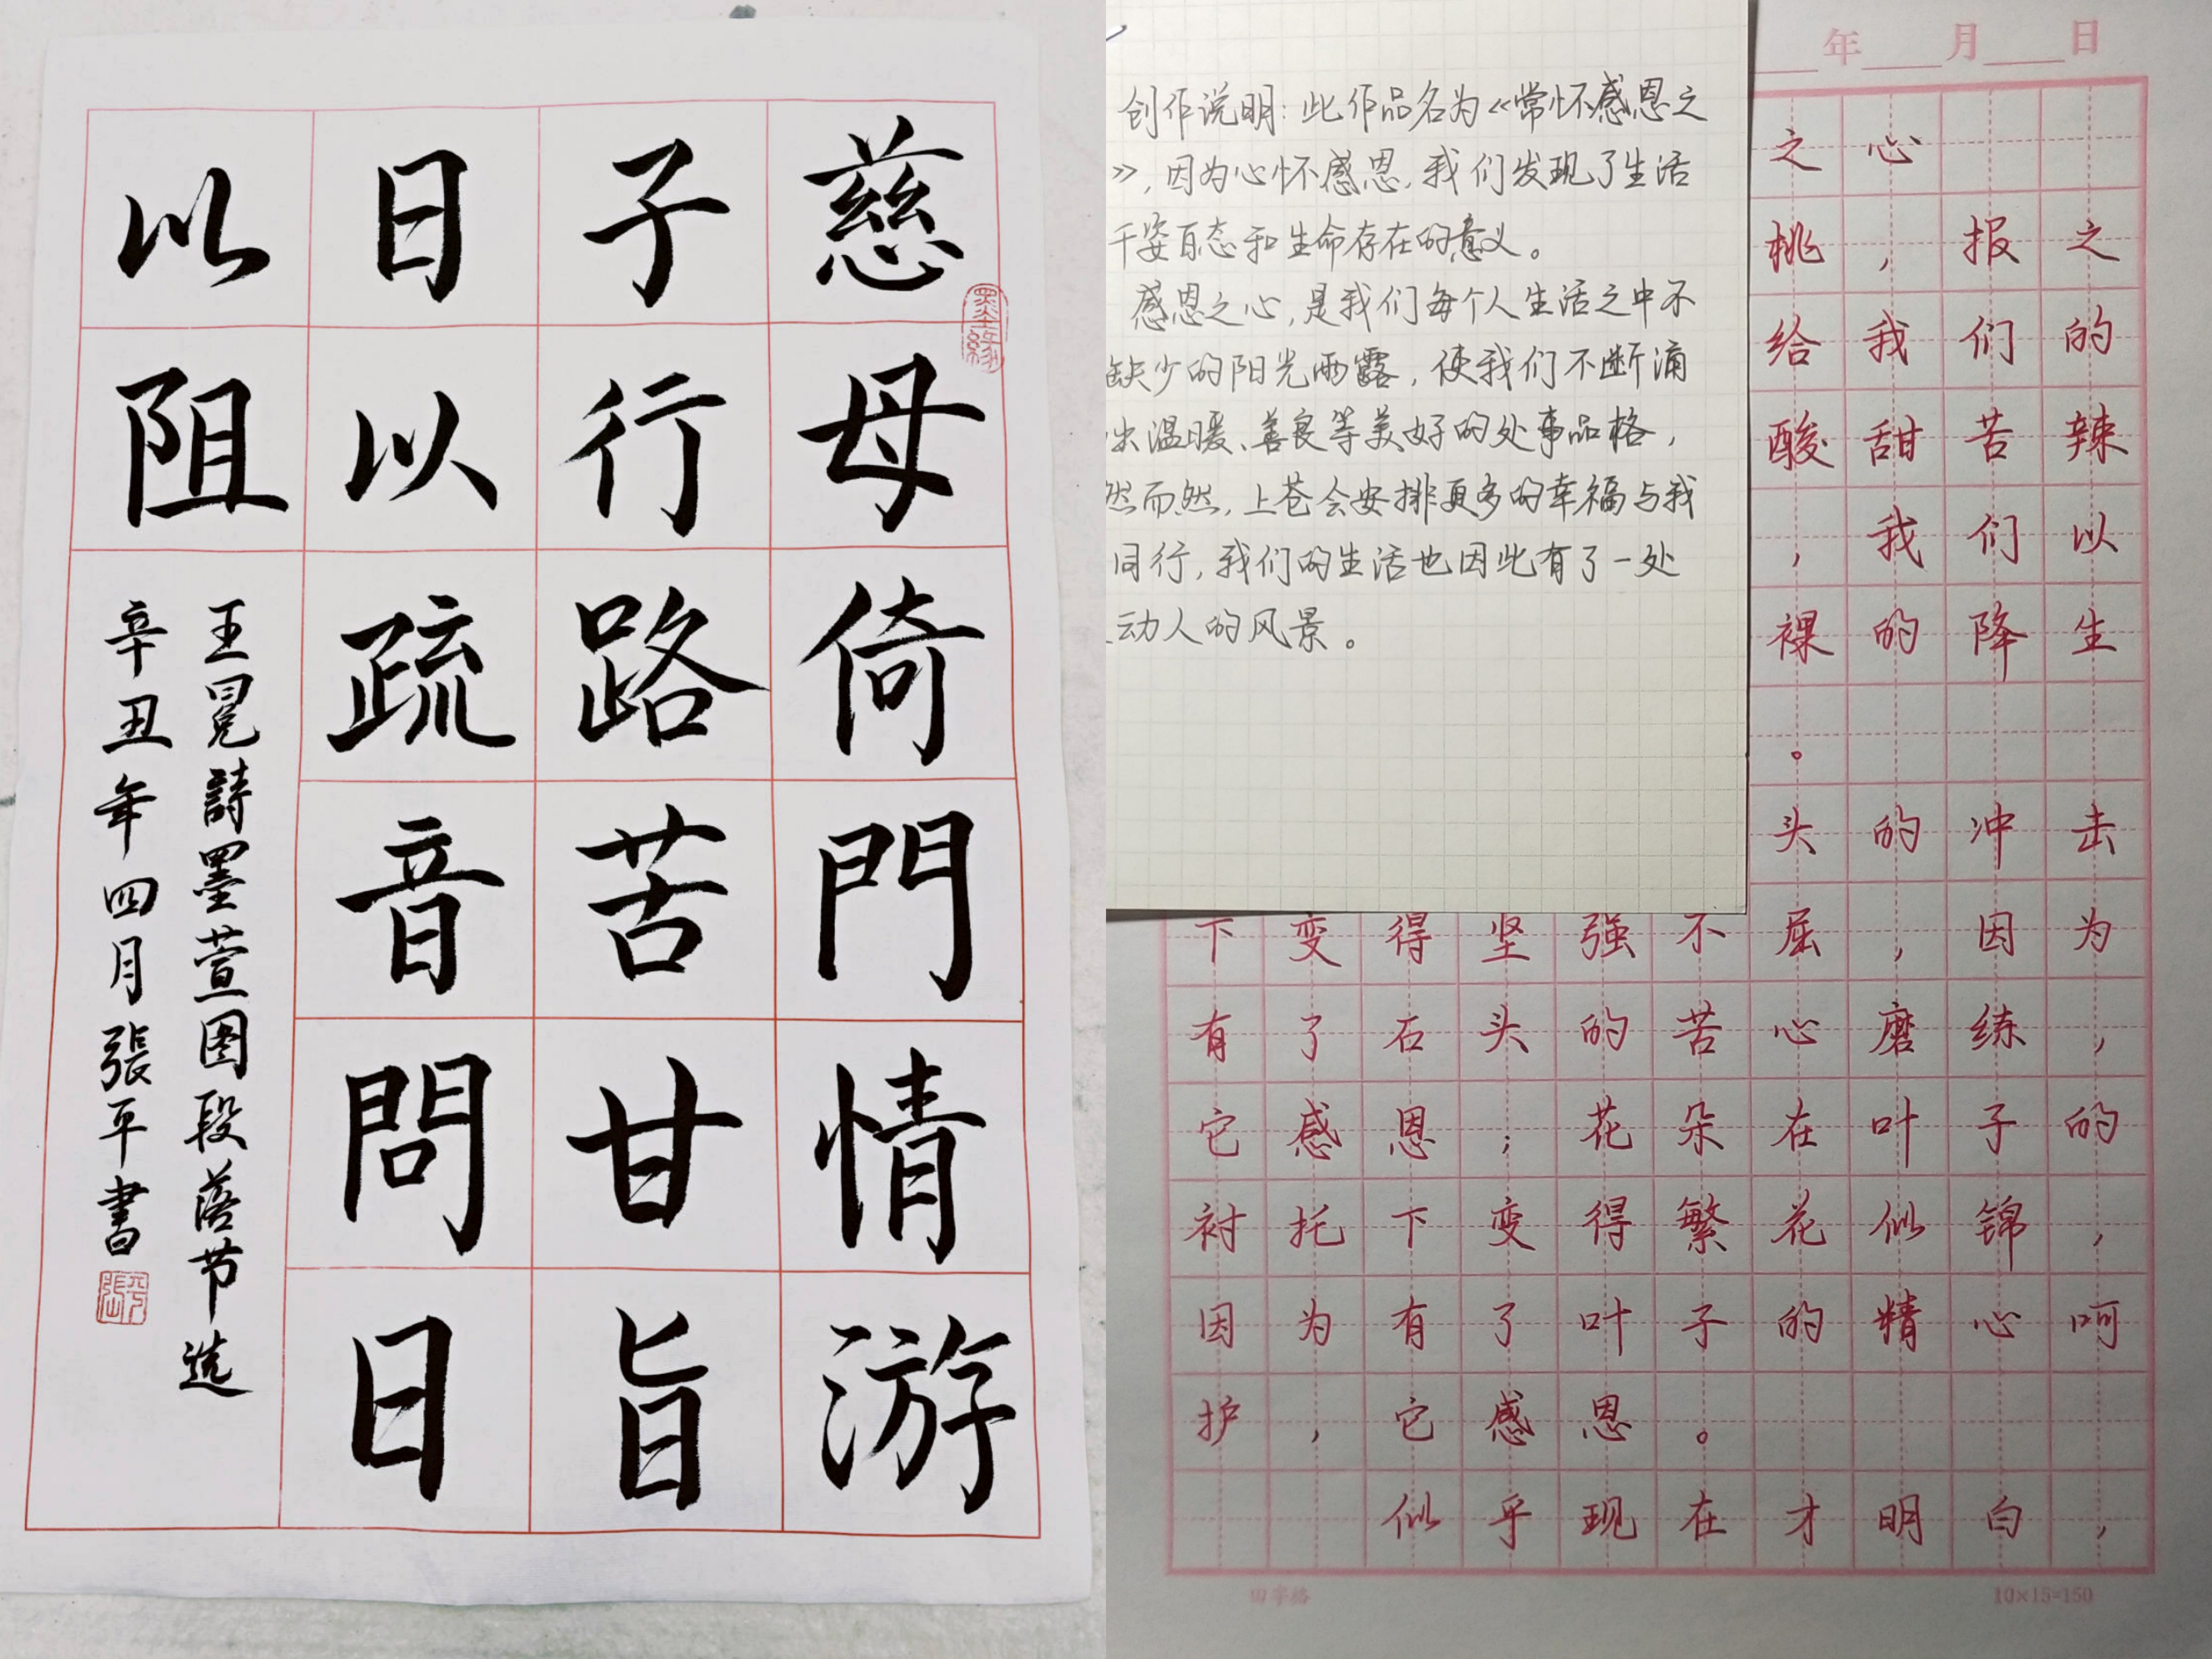 慈母倚門情游
子行路苦甘旨
日以疏音問日
以阻
王冕詩墨萱图段落节选
辛丑年四月張平書
墨緣
創作说明：此作品名为《常怀感恩之
》，因为心怀感恩，我们发现了生活
千姿百态和生命存在的意义。
感恩之心，是我们每个人生活之中不
缺少的阳光雨露，使我们不断涌
出温暖、善良等美好的处事品格，
然而然，上苍会安排更多的幸福与我
同行，我们的生活也因此有了一处
动人的风景。
年 月 日
之心
桃，报之
给我们的
酸甜苦辣
，我们以
裸的降生
。
头的冲击
下变得坚强不屈，因为
有了石头的苦心磨练，
它感恩；花朵在叶子的
衬托下变得繁花似锦，
因为有了叶子的精心呵
护，它感恩。
似乎现在才明白，
田字格
10×15=150